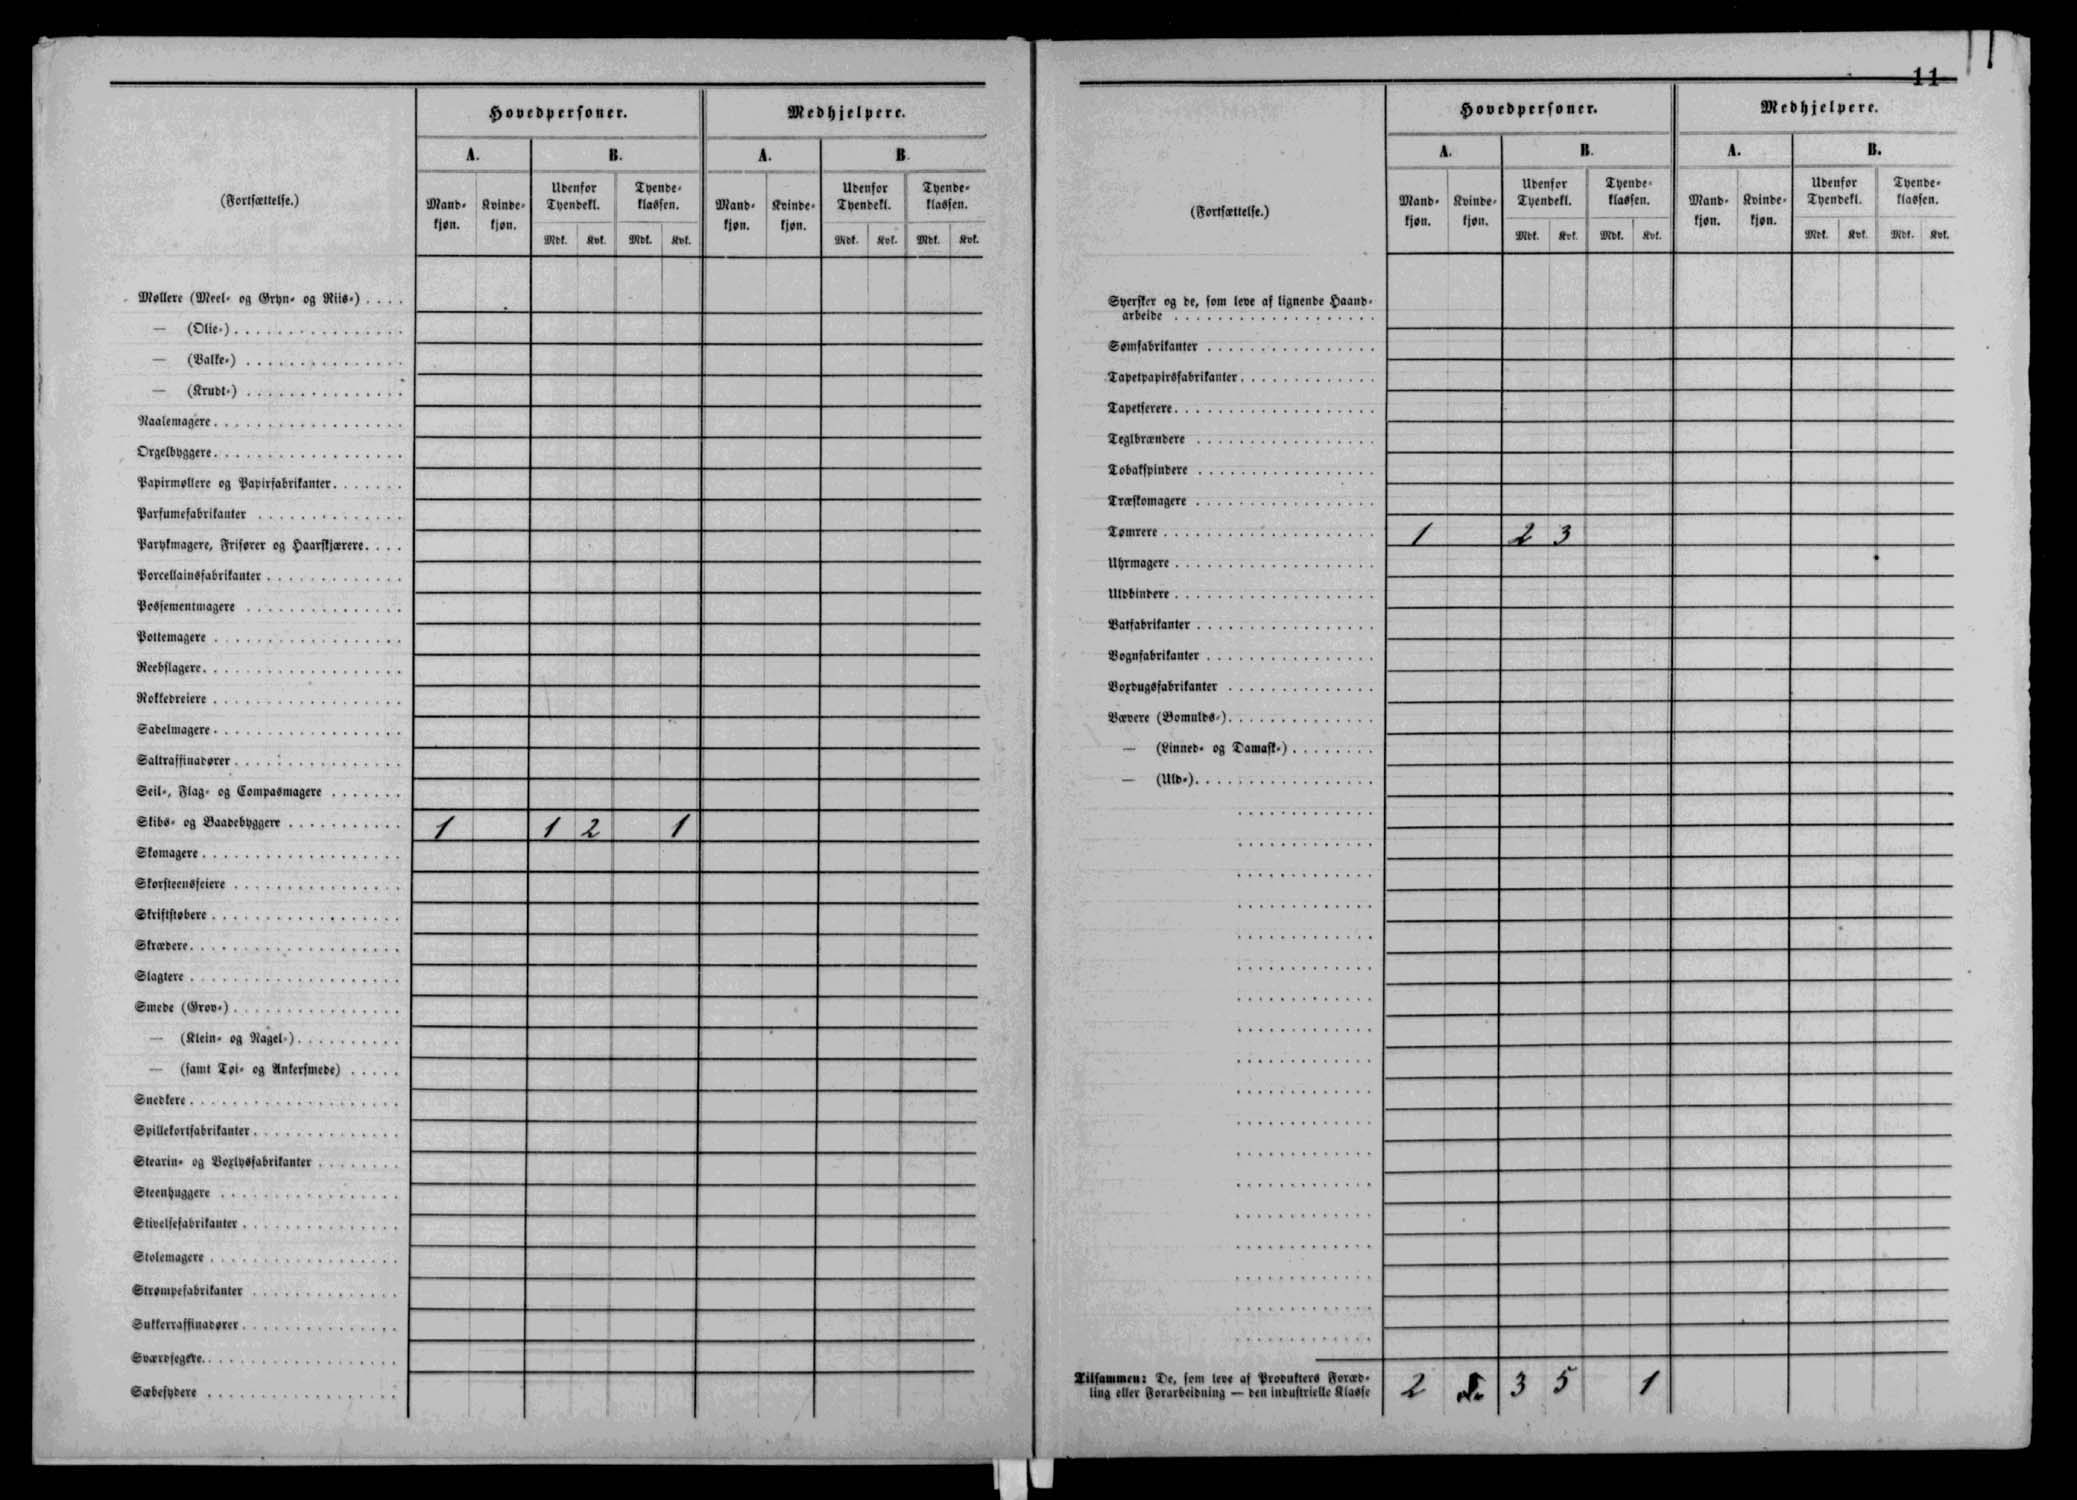 Hovedpersoner. Medhjelpere.
A. B. A. B.
(Fortsættelse.)
Mandkjøn. Kvindekjøn. Udenfor Tyendekl. Tyendeklassen. Mandkjøn. Kvindekjøn. Udenfor Tyendekl. Tyendeklassen.
Mdk. Kvk. Mdk. Kvk. Mdk. Kvk. Mdk. Kvk.
Møllere (Meel- og Gryn- og Riis-) . . . .
— (Olie-)
— (Valke-)
— (Krudt-)
Naalemagere
Orgelbyggere
Papirmøllere og Papirfabrikanter
Parfumefabrikanter
Parykmagere, Frisører og Haarskjærere
Porcellainsfabrikanter
Possementmagere
Pottemagere
Reebslagere
Rokkedreiere
Sadelmagere
Saltraffinadører
Seil-, Flag- og Compasmagere
Skibs- og Baadebyggere 1 1 2 1
Skomagere
Skorsteensfeiere
Skriftstøbere
Skrædere
Slagtere
Smede (Grov-)
— (Klein- og Nagel-)
— (samt Tøi- og Ankersmede)
Snedkere
Spillekortfabrikanter
Stearin- og Voxlysfabrikanter
Steenhuggere
Stivelsefabrikanter
Stolemagere
Strømpefabrikanter
Sukkerraffinadører
Sværdfegere
Sæbesydere
11
Hovedpersoner. Medhjelpere.
A. B. A. B.
(Fortsættelse.)
Mandkjøn. Kvindekjøn. Udenfor Tyendekl. Tyendeklassen. Mandkjøn. Kvindekjøn. Udenfor Tyendekl. Tyendeklassen.
Mdk. Kvk. Mdk. Kvk. Mdk. Kvk. Mdk. Kvk.
Syersker og de, som leve af lignende Haand-
arbeide
Sømfabrikanter
Tapetpapirsfabrikanter
Tapetserere
Teglbrændere
Tobakspindere
Træskomagere
Tømrere 1 2 3
Uhrmagere
Uldbindere
Vatfabrikanter
Vognfabrikanter
Voxdugsfabrikanter
Vævere (Bomulds-)
— (Linned- og Damask-)
— (Uld-)
Tilsammen: De, som leve af Produkters Foræd-
ling eller Forarbeidning — den industrielle Klasse 2 3 5 1